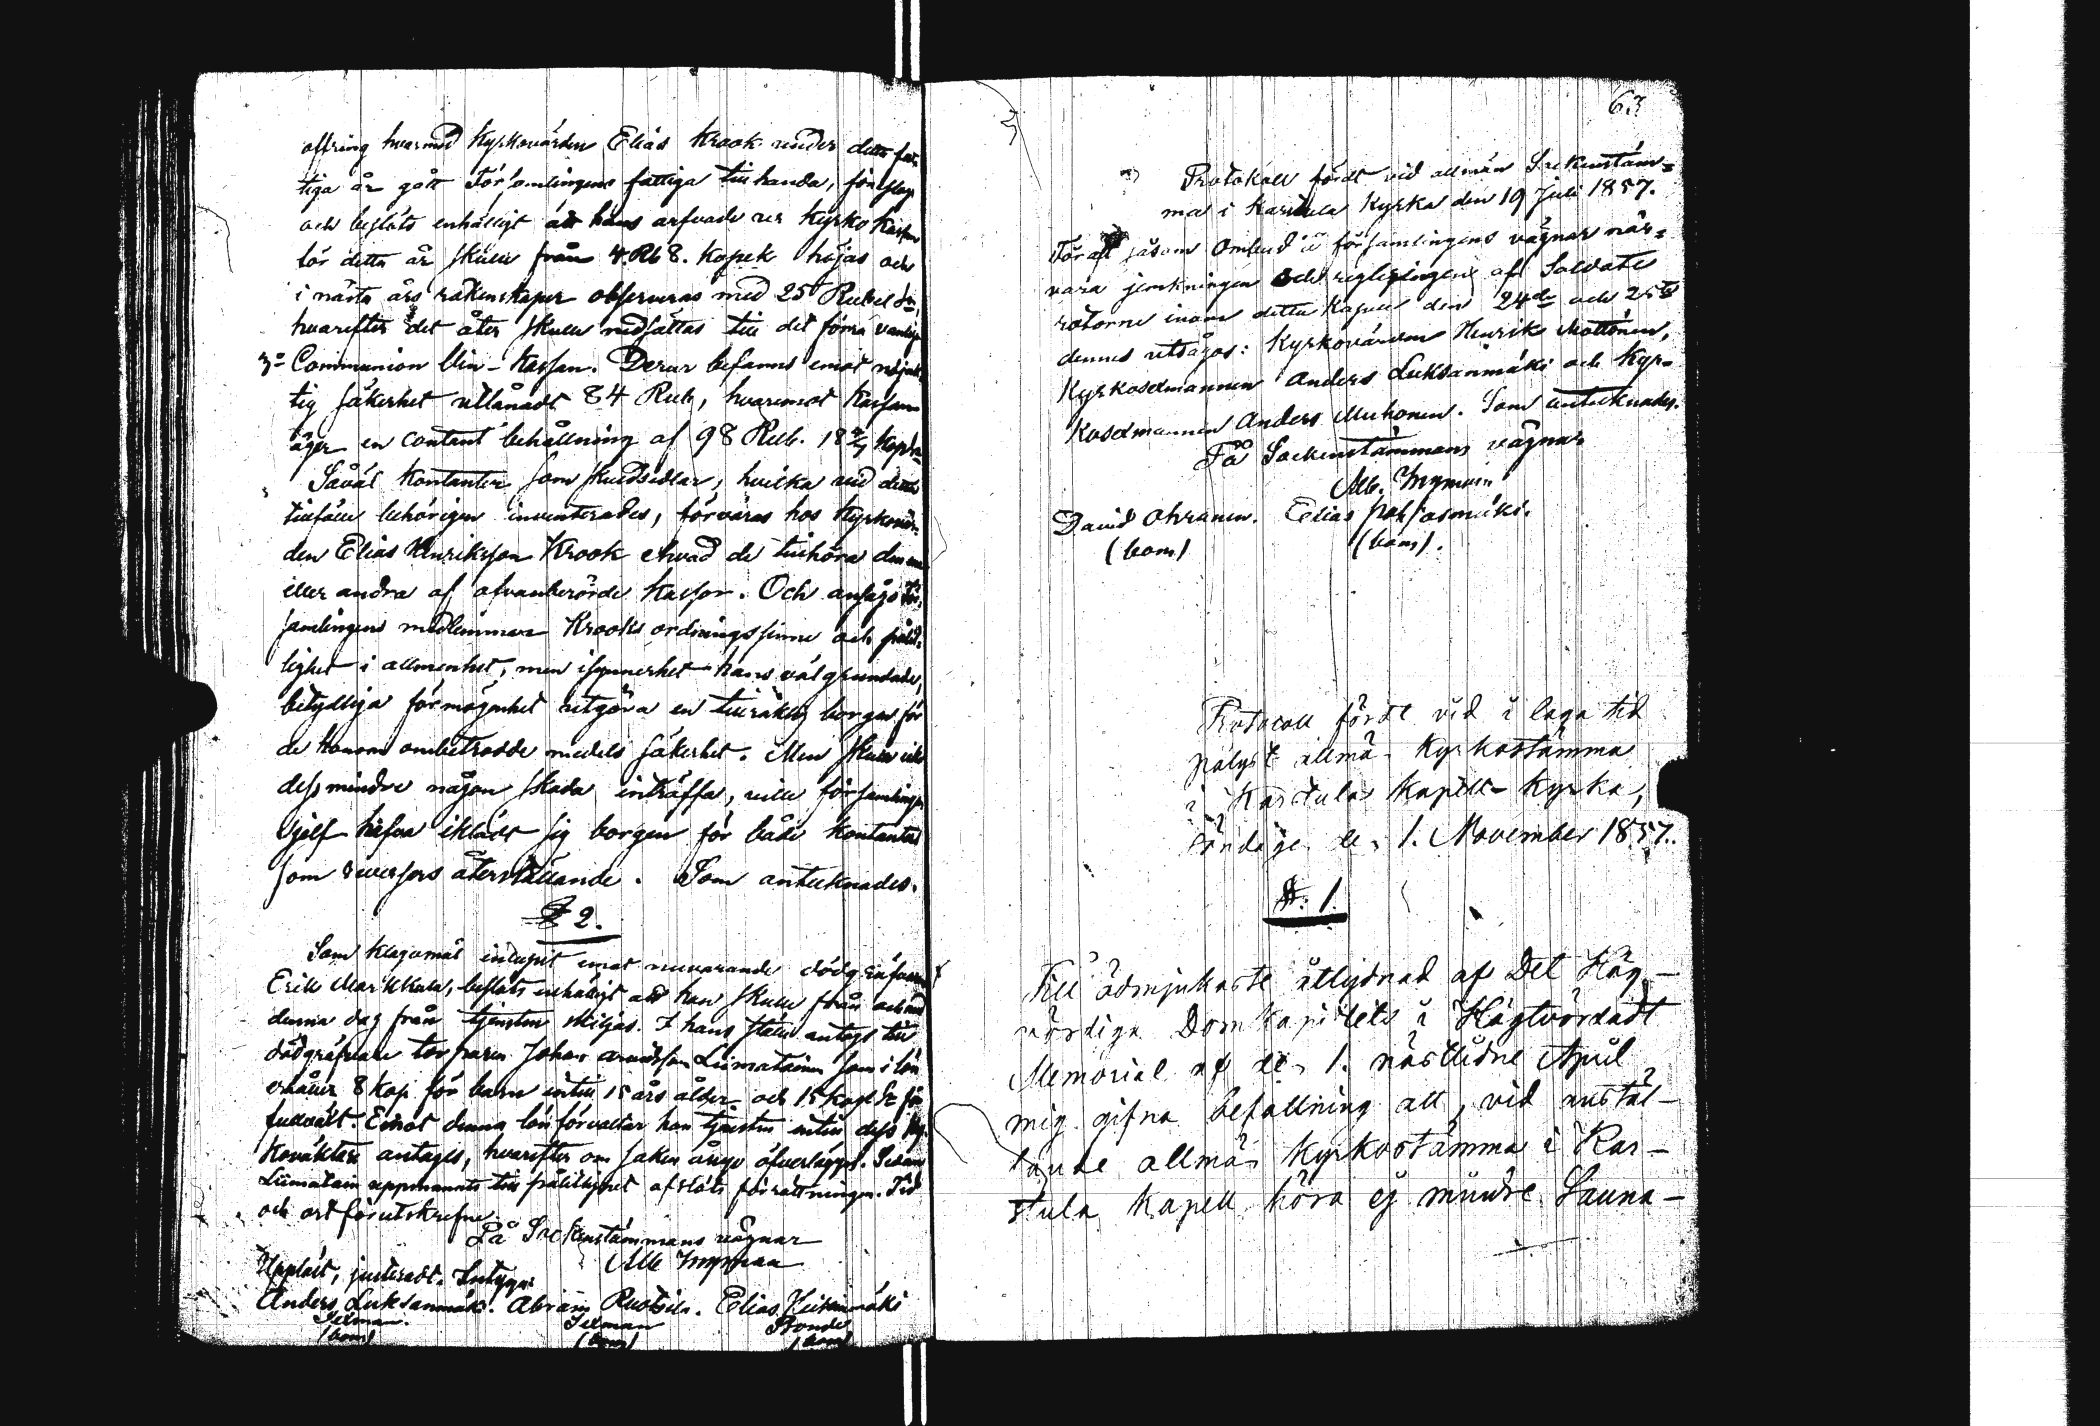 offring hvarmed Kyrkovärden Elias Krook under detta fat-
tiga år gått Församlingens fattiga tillhanda, föreslogs
och beslöts enhälligt att hans arfvode ur Kyrko Kassan
för detta år skulle från 4. Rb 8. Kopek höjas och
i nästa års räkenskaper observeras med 25 Rubel Sr,
hvarefter det åter skulle nedsättas till det förra vanliga
3o Communion Vin-Kassan. Derur befanns emot nöjak-
tig säkerhet utlånadt 84 Rub, hvaremot Kassan
äger en contant behållning af 98 Rub. 18 Kop
Såväl Kontanter som skuldsedlar, hvilka vid detta
tillfälle behörigen inventerades, förvaras hos Kyrkovär-
den Elias Henriksson Krook ehvad de tillhöra den ena
eller andra af ofvanberörde Kassor. Och ansågo För-
samlingens medlemmar Krooks ordningssinne och pålit-
lighet i allmenhet, men isynnerhet hans välgrundade,
betydliga förmögenhet utgöra en tillräklig borgen för
de honom ombetrodde medels säkerhet. Men skulle icke
dess mindre någon skada inträffa, ville församlingen
sjelf hafva iklädt sig borgen för både Kontanters
som reversers återställande. Som antecknades.
§ 2.
Som klagomål inlupit emot nuvarande dödgräfvaren
Erik Markkula, beslöts enhälligt att han skulle från och med
denna dag från tjensten skiljas. I hans ställe antogs till
dödgräfvare torparen Johan Liimatainen som i lön
erhåller 8 kop för barn intill 15 års ålder och 15 kop Sr för
fullväxt. Emot denna lön förvaltar han tjensten intill dess Ky-
kovaktare antages, hvarefter om saken ånyo öfverlägges. Sedan
Liimatain uppmannts till pålitlighet afslöts förrättningen. Tid
och ort förutskrefne.
På Sockenstämmans vägnar
Alb Inyman
Uppläst, justeradt. Intyga:
Anders Luksanmäki. Abram Ruotsila. Elias
Sexman. Sexman Bonde
(bom) (bom) (bom)
63
Protokoll fördt vid allmän Sockenstäm-
ma i Karstula Kyrka den 19 Juli 1857.
För att såsom Ombud å församlingens vägnar när-
vara jemkningen och regleringen af Soldate
rotorne inom detta Kapell den 24de och 25te
dennes utsågos: Kyrkovärden Henrik Mottönen,
Kyrkosexmannen Anders Luksanmäki och Kyr-
kosexmannen Anders Muhonen. Som antecknades.
På Sockenstämmans vägnar
Alb. Inyman
David Ahranen. Elias Pohjasmäki.
(bom) (bom).
Protocoll fördt vid i laga tid
pålyst allmän Kyrkostämma
i Karstula Kapell-Kyrka,
Söndagen den 1. November 1857.
§. 1.
Till ödmjukaste åtlydnad af Det Hög-
vördiga Domkapitlets i Högtvördadt
Memorial af den 1. nästlidne April
mig gifna befallning att, vid anstäl-
lande allmän Kyrkostämma i Kar-
stula Kapell höra ej mindre Sauna-